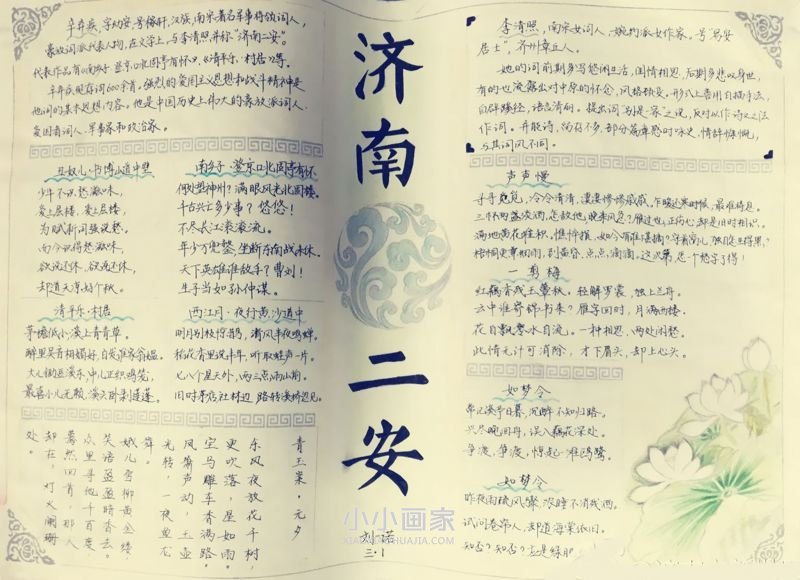 辛弃疾,字幼安,号稼轩,汉族,南宋著名军事将领词人,
豪放词派代表人物,在文学上,与李清照并称“济南二安”。
代表作品有《南乡子·登京口北固亭有怀》、《清平乐·村居》等。
辛弃疾现存词600余首,强烈的爱国主义思想和战斗精神是
他词的基本思想内容。他是中国历史上伟大的豪放派词人、
爱国者词人、军事家和政治家。
丑奴儿·书博山道中壁
少年不识愁滋味,
爱上层楼,爱上层楼,
为赋新词强说愁。
而今识得愁滋味,
欲说还休,欲说还休,
却道天凉好个秋。
南乡子·登京口北固亭有怀
何处望神州?满眼风光北固楼。
千古兴亡多少事?悠悠!
不尽长江滚滚流。
年少万兜鍪,坐断东南战未休。
天下英雄谁敌手?曹刘!
生子当如孙仲谋。
清平乐·村居
茅檐低小,溪上青青草。
醉里吴音相媚好,白发谁家翁媪。
大儿锄豆溪东,中儿正织鸡笼,
最喜小儿无赖,溪头卧剥莲蓬。
西江月·夜行黄沙道中
明月别枝惊鹊,清风半夜鸣蝉。
稻花香里说丰年,听取蛙声一片。
七八个星天外,两三点雨山前。
旧时茅店社林边,路转溪桥忽见。
青玉案·元夕
东风夜放花千树,
更吹落,星如雨。
宝马雕车香满路。
凤箫声动,玉壶
光转,一夜鱼龙
舞。
蛾儿雪柳黄金缕,
笑语盈盈暗香去。
众里寻他千百度,
蓦然回首,那人
却在,灯火阑珊
处。
济南二安
刘诺
三·1
小小画家
XIAOXIAOHUAJIA.COM
李清照,南宋女词人,婉约派女作家,号“易安
居士”,齐州章丘人。
她的词前期多写悠闲生活,闺情相思,后期多悲叹身世,
有的也流露出对中原的怀念,风格颇变。形式上善用白描手法,
自辟蹊径,语言清丽。提出词“别是一家”之说,反对以作诗文之法
作词。并能诗,留存不多,部分篇章感时咏史,情辞慷慨,
与其词风不同。
声声慢
寻寻觅觅,冷冷清清,凄凄惨惨戚戚。乍暖还寒时候,最难将息。
三杯两盏淡酒,怎敌他,晚来风急?雁过也,正伤心,却是旧时相识。
满地黄花堆积。憔悴损,如今有谁堪摘?守着窗儿,独自怎生得黑?
梧桐更兼细雨,到黄昏、点点滴滴。这次第,怎一个愁字了得!
一剪梅
红藕香残玉簟秋。轻解罗裳,独上兰舟。
云中谁寄锦书来?雁字回时,月满西楼。
花自飘零水自流。一种相思,两处闲愁。
此情无计可消除,才下眉头,却上心头。
如梦令
常记溪亭日暮,沉醉不知归路。
兴尽晚回舟,误入藕花深处。
争渡,争渡,惊起一滩鸥鹭。
如梦令
昨夜雨疏风骤,浓睡不消残酒。
试问卷帘人,却道海棠依旧。
知否?知否?应是绿肥